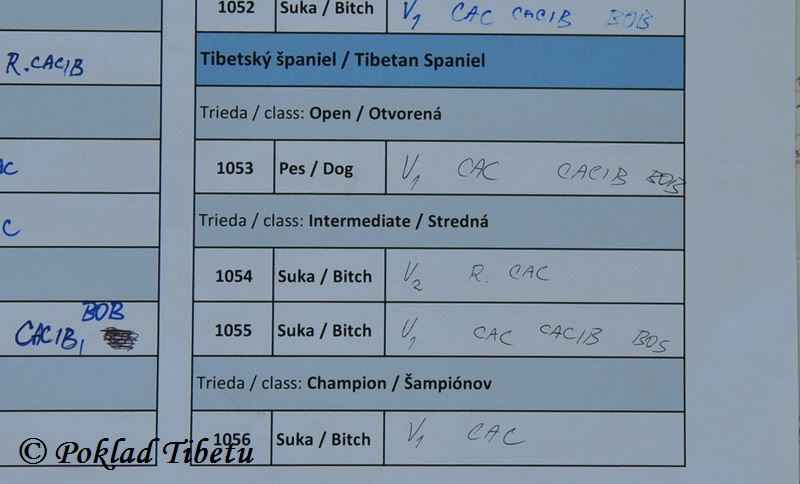 R.CACIB
AC
C
BOB
CACIB,
1052 Suka / Bitch V1 CAC CACIB BOB
Tibetský španiel / Tibetan Spaniel
Trieda / class: Open / Otvorená
1053 Pes / Dog V1 CAC CACIB BOB
Trieda / class: Intermediate / Stredná
1054 Suka / Bitch V2 R. CAC
1055 Suka / Bitch V1 CAC CACIB BOS
Trieda / class: Champion / Šampiónov
1056 Suka / Bitch V1 CAC
© Poklad Tibetu